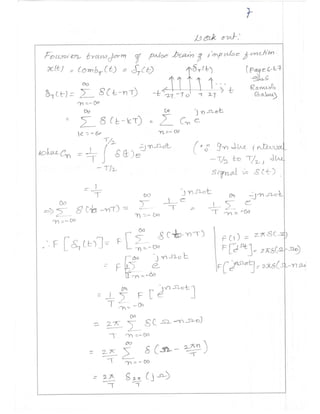 7
Work out:
Fourier transform of pulse train of impulse function.
x(t) = comb_T(t) = δ_T(t)
δ_T(t)
(Page 6.67
Ramesh
Babu)
-t -2T -T 0 T 2T t
δ_T(t) = ∑_{n=-∞}^{∞} δ(t-nT)
= ∑_{k=-∞}^{∞} δ(t-kT) = ∑_{n=-∞}^{∞} C_n e^{jnΩ0t}
where C_n = 1/T ∫_{-T/2}^{T/2} δ(t) e^{-jnΩ0t} (∵ In the interval
-T/2 to T/2, the
signal is δ(t).
= 1/T
⇒ ∑_{n=-∞}^{∞} δ(t-nT) = ∑_{n=-∞}^{∞} 1/T e^{jnΩ0t} = 1/T ∑_{n=-∞}^{∞} e^{jnΩ0t}
∴ F[δ_T(t)] = F[∑_{n=-∞}^{∞} δ(t-nT)]
F(1) = 2πδ(Ω)
= F[1/T ∑_{n=-∞}^{∞} e^{jnΩ0t}]
F[e^{jΩ0t}] = 2πδ(Ω-Ω0)
F[e^{jnΩ0t}] = 2πδ(Ω-nΩ0)
= 1/T ∑_{n=-∞}^{∞} F[e^{jnΩ0t}]
= 2π/T ∑_{n=-∞}^{∞} δ(Ω-nΩ0)
= 2π/T ∑_{n=-∞}^{∞} δ(Ω - 2πn/T)
= 2π/T δ_{2π/T}(jΩ)